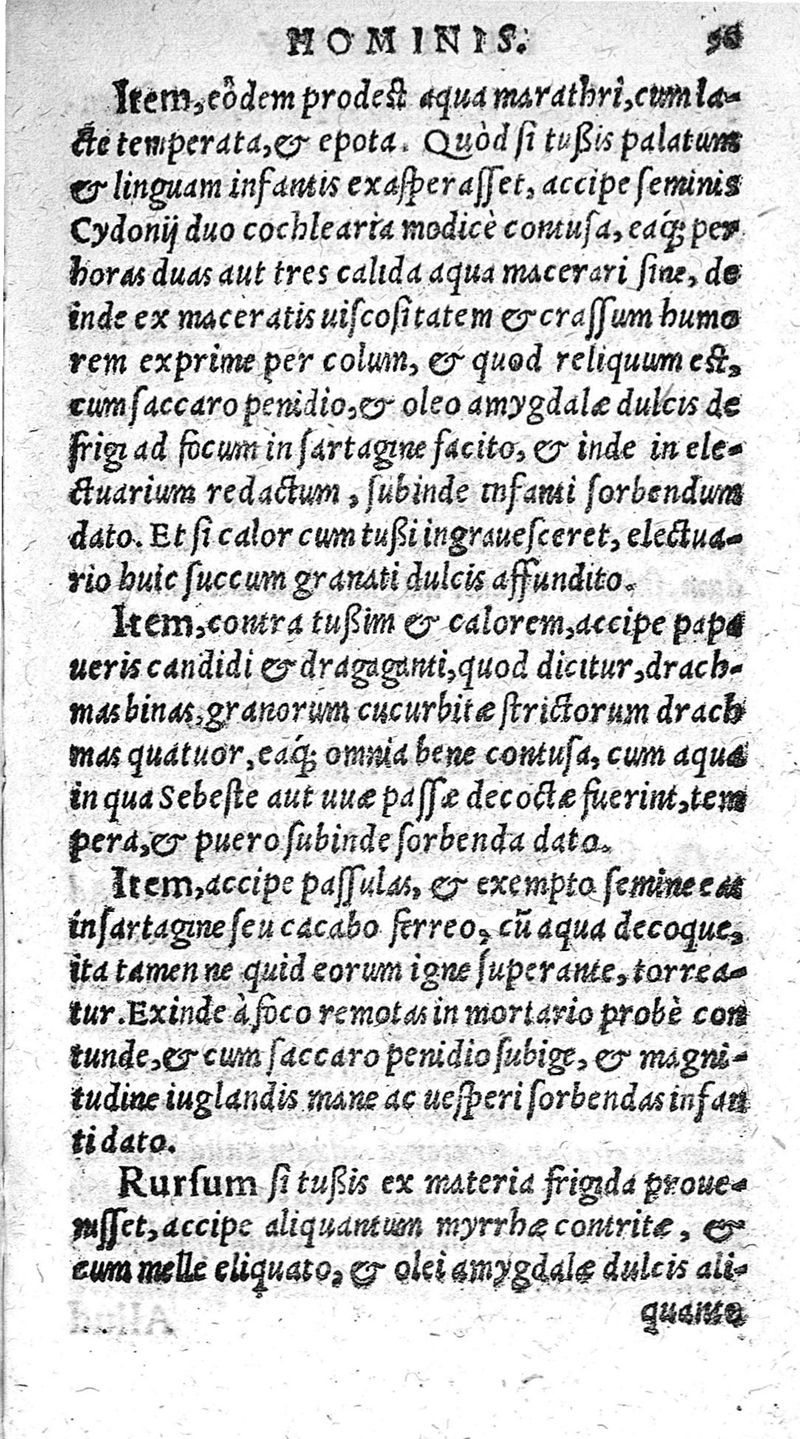 HOMINIS. 56
Item, eôdem prodest aqua marathri, cum la-
cte temperata, & epota. Quòd si tußis palatum
& linguam infantis exasperasset, accipe seminis
Cydonij duo cochlearia modicè contusa, eaq́; per
horas duas aut tres calida aqua macerari sine, de
inde ex maceratis uiscositatem & crassum humo
rem exprime per colum, & quod reliquum est,
cum saccaro penidio, & oleo amygdalæ dulcis de
frigi ad focum in sartagine facito, & inde in ele-
ctuarium redactum, subinde infanti sorbendum
dato. Et si calor cum tußi ingrauesceret, electua-
rio huic succum granati dulcis affundito.
Item, contra tußim & calorem, accipe papa
ueris candidi & dragaganti, quod dicitur, drach-
mas binas, granorum cucurbitæ strictorum drach
mas quatuor, eaq́; omnia bene contusa, cum aqua
in qua Sebeste aut uuæ passæ decoctæ fuerint, tem
pera, & puero subinde sorbenda dato.
Item, accipe passulas, & exempto semine eas
in sartagine seu cacabo ferreo, cū aqua decoque,
ita tamen ne quid eorum igne superante, torrea-
tur. Exinde à foco remotas in mortario probè con
tunde, & cum saccaro penidio subige, & magni-
tudine iuglandis mane ac uesperi sorbendas infan
ti dato.
Rursum si tußis ex materia frigida proue-
nisset, accipe aliquantum myrrhæ contritæ, &
cum melle eliquato, & olei amygdalæ dulcis ali-
quanto